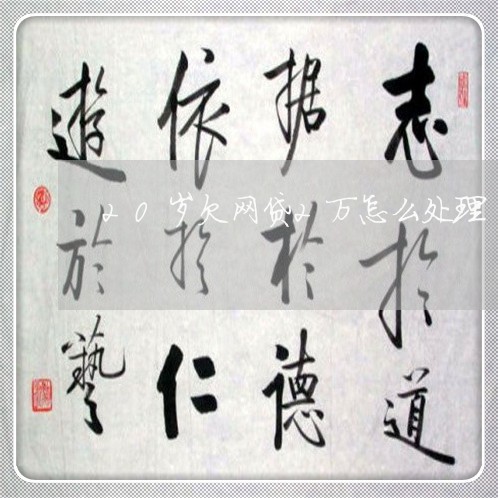 志於道
据於德
依於仁
遊於藝
20岁欠网贷2万怎么处理